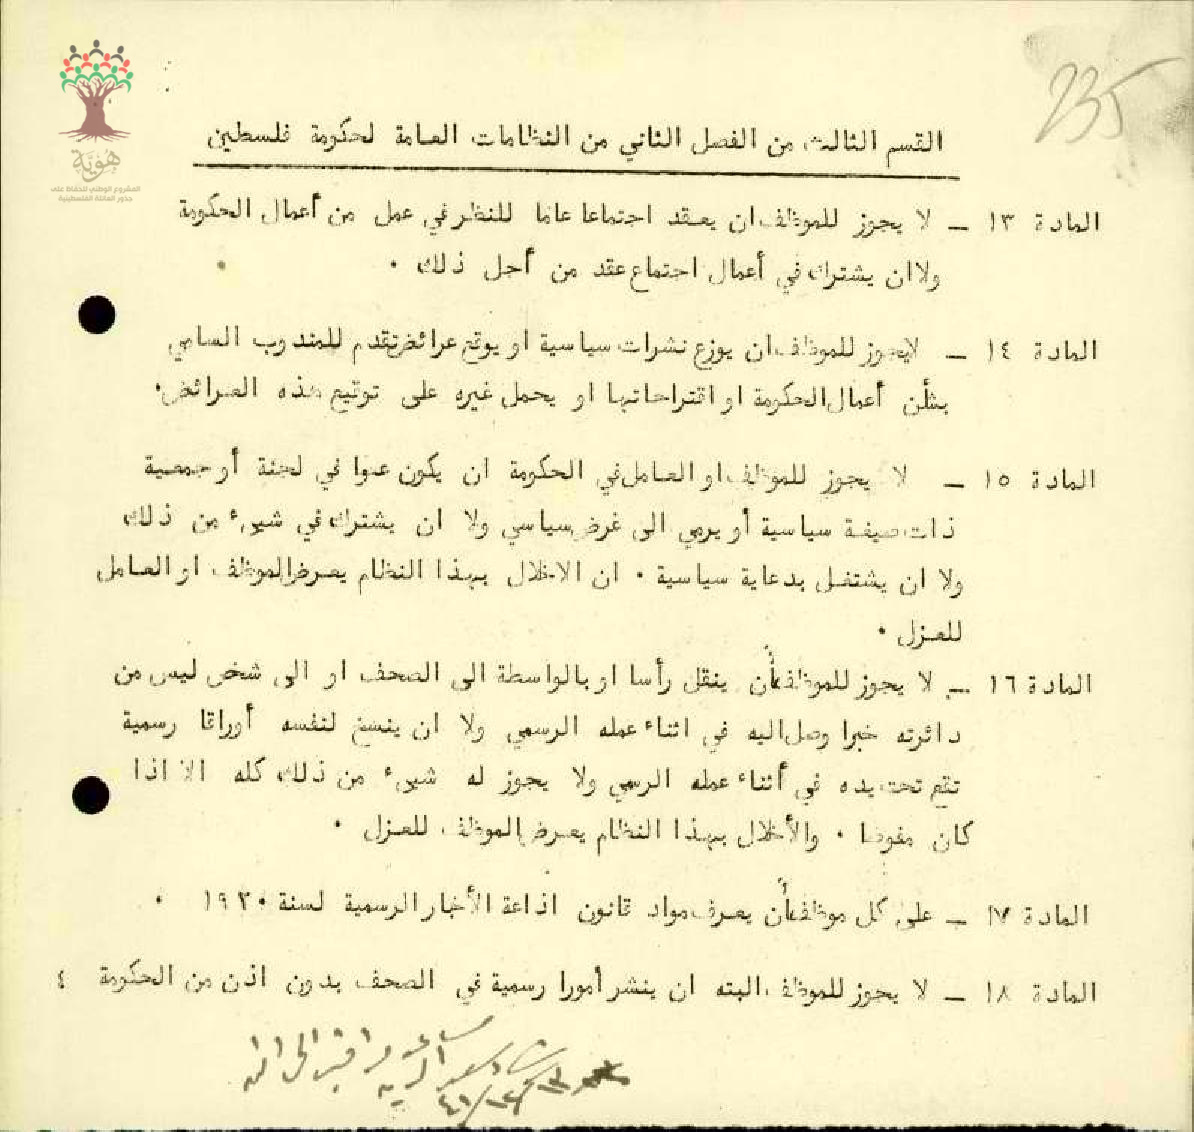 235
هُويَّة
المشروع الوطني للحفاظ على
جذور العائلة الفلسطينية
القسم الثالث من الفصل الثاني من النظامات العامة لحكومة فلسطين
المادة ١٣ ـ لا يجوز للموظف ان يعقد اجتماعا عاما للنظر في عمل من أعمال الحكومة
ولا ان يشترك في أعمال اجتماع عقد من أجل ذلك ٠
المادة ١٤ ـ لا يجوز للموظف ان يوزع نشرات سياسية او يوقع عرائض تقدم للمندوب السامي
بشأن أعمال الحكومة او اقتراحاتها او يحمل غيره على توقيع هذه العرائض٠
المادة ١٥ ـ لا يجوز للموظف او العامل في الحكومة ان يكون عضوا في لجنة أو جمعية
ذات صيغة سياسية أو يرمي الى غرض سياسي ولا ان يشترك في شيىء من ذلك
ولا ان يشتغل بدعاية سياسية ٠ ان الاخلال بهذا النظام يعرض الموظف او العامل
للعزل ٠
المادة ١٦ ـ لا يجوز للموظف أن ينقل رأسا او بالواسطة الى الصحف او الى شخص ليس من
دائرته خبرا وصل اليه في اثناء عمله الرسمي ولا ان ينسخ لنفسه أوراقا رسمية
تقع تحت يده في أثناء عمله الرسمي ولا يجوز له شيىء من ذلك كله الا اذا
كان مفوضا ٠ والأخلال بهذا النظام يعرض الموظف للعزل ٠
المادة ١٧ ـ على كل موظف أن يعرف مواد قانون اذاعة الأخبار الرسمية لسنة ١٩٢٠ ٠
المادة ١٨ ـ لا يجوز للموظف البته ان ينشر أمورا رسمية في الصحف بدون اذن من الحكومة ٤